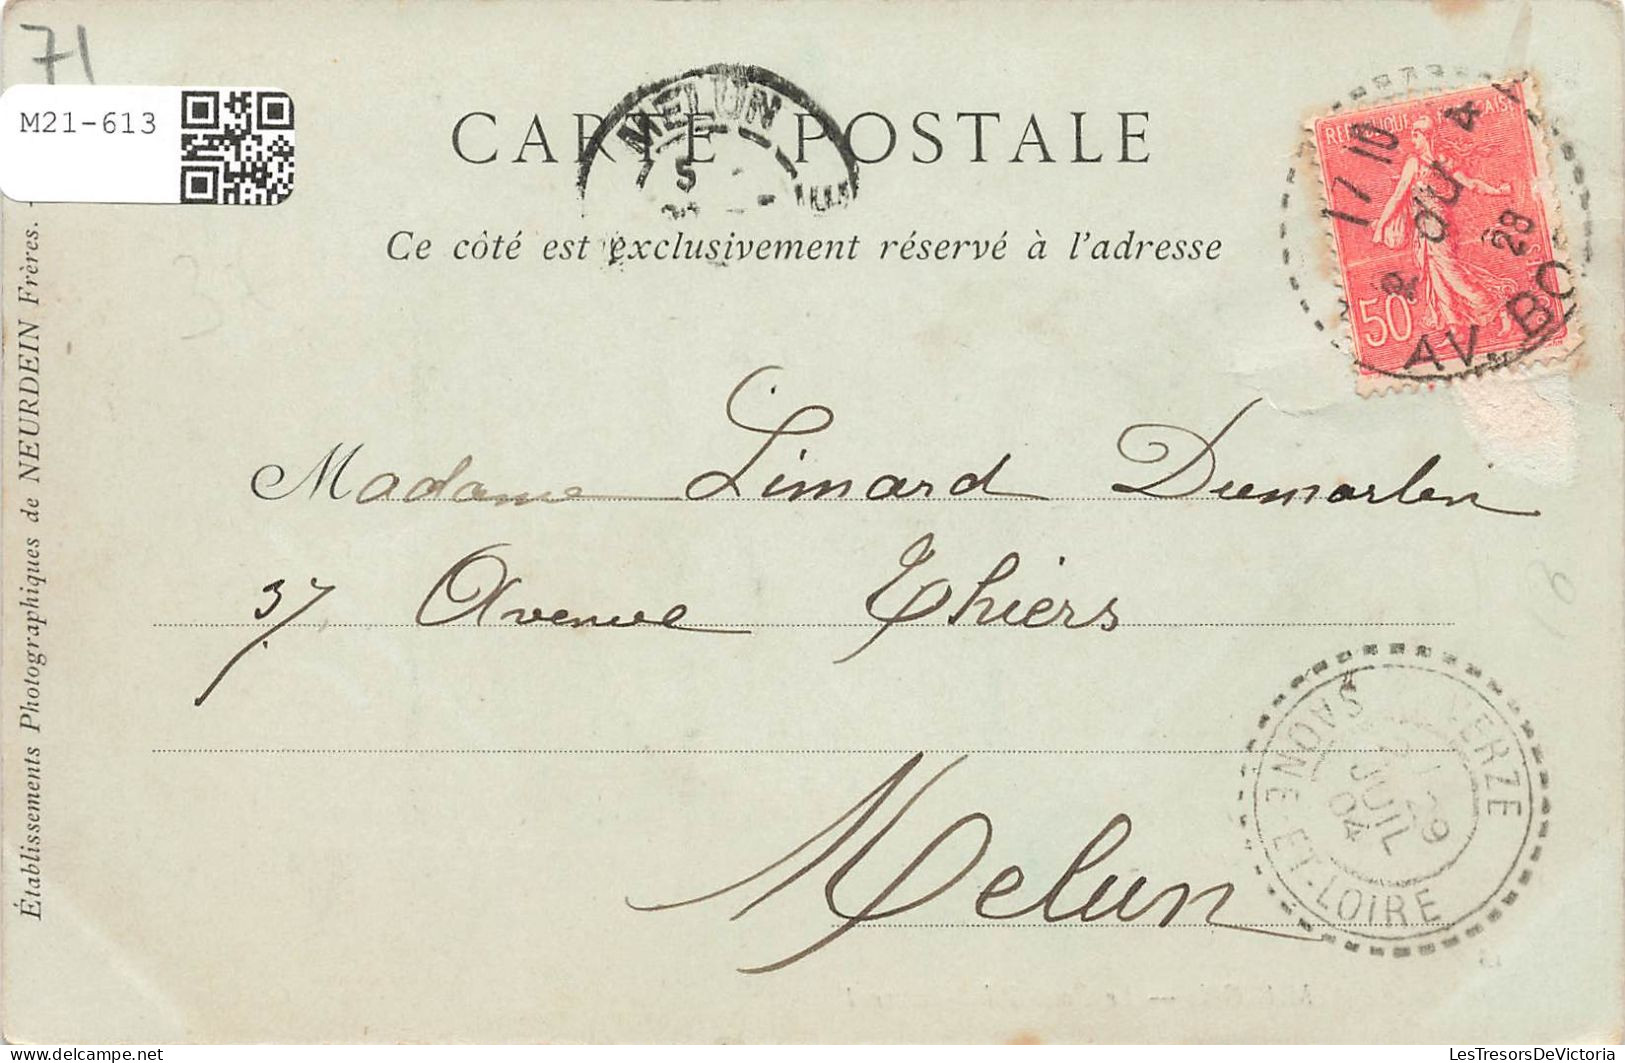 71
M21-613
CARTE POSTALE
MELUN
5
Ce côté est exclusivement réservé à l'adresse
REPUBLIQUE FRANÇAISE
17 10
28
50
AV. BO
Établissements Photographiques de NEURDEIN Frères.
Madame Limard Dumarlin
37, Avenue Thiers
Melun
VERZE
29
JUIL
04
SAONE-ET-LOIRE
delcampe.net
LesTresorsDeVictoria